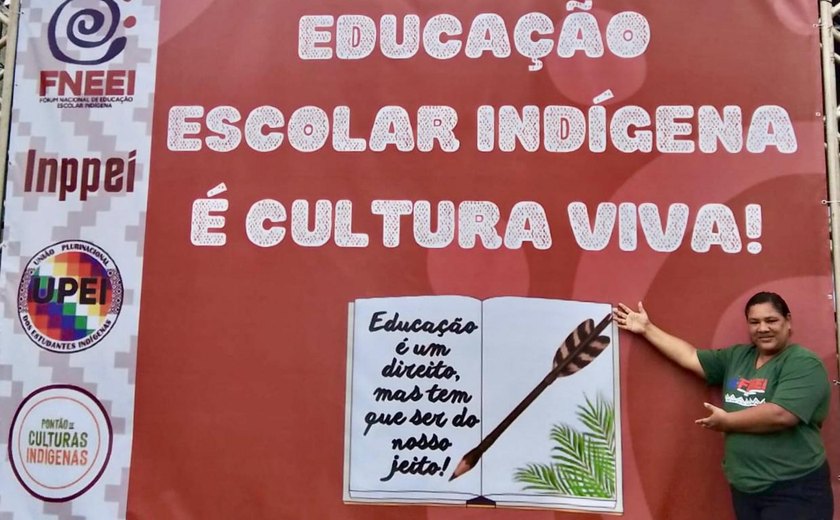 FNEEI
FÓRUM NACIONAL DE EDUCAÇÃO
ESCOLAR INDÍGENA
Inppeí
UNIÃO PLURINACIONAL
UPEI
DOS ESTUDANTES INDÍGENAS
PONTÃO DE
CULTURAS
INDÍGENAS
EDUCAÇÃO
ESCOLAR INDÍGENA
É CULTURA VIVA!
Educação
é um
direito,
mas tem
que ser do
nosso
jeito!
FNEEI